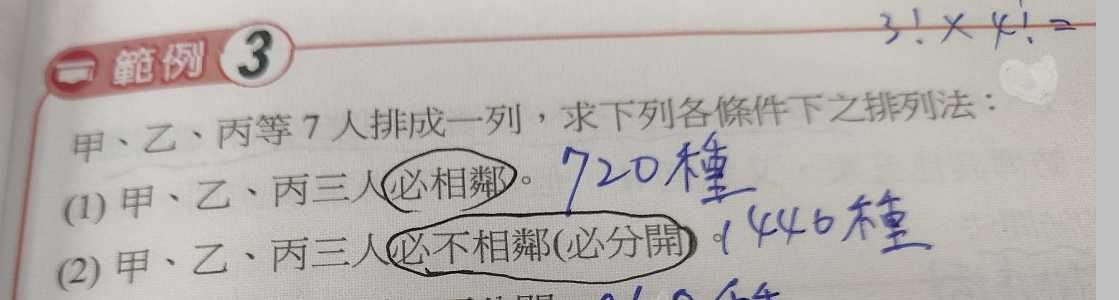 3! × 4! =
範例 3
甲、乙、丙等 7 人排成一列，求下列各條件下之排列法：
(1) 甲、乙、丙三人必相鄰。 720種
(2) 甲、乙、丙三人必不相鄰(必分開)。 1440種